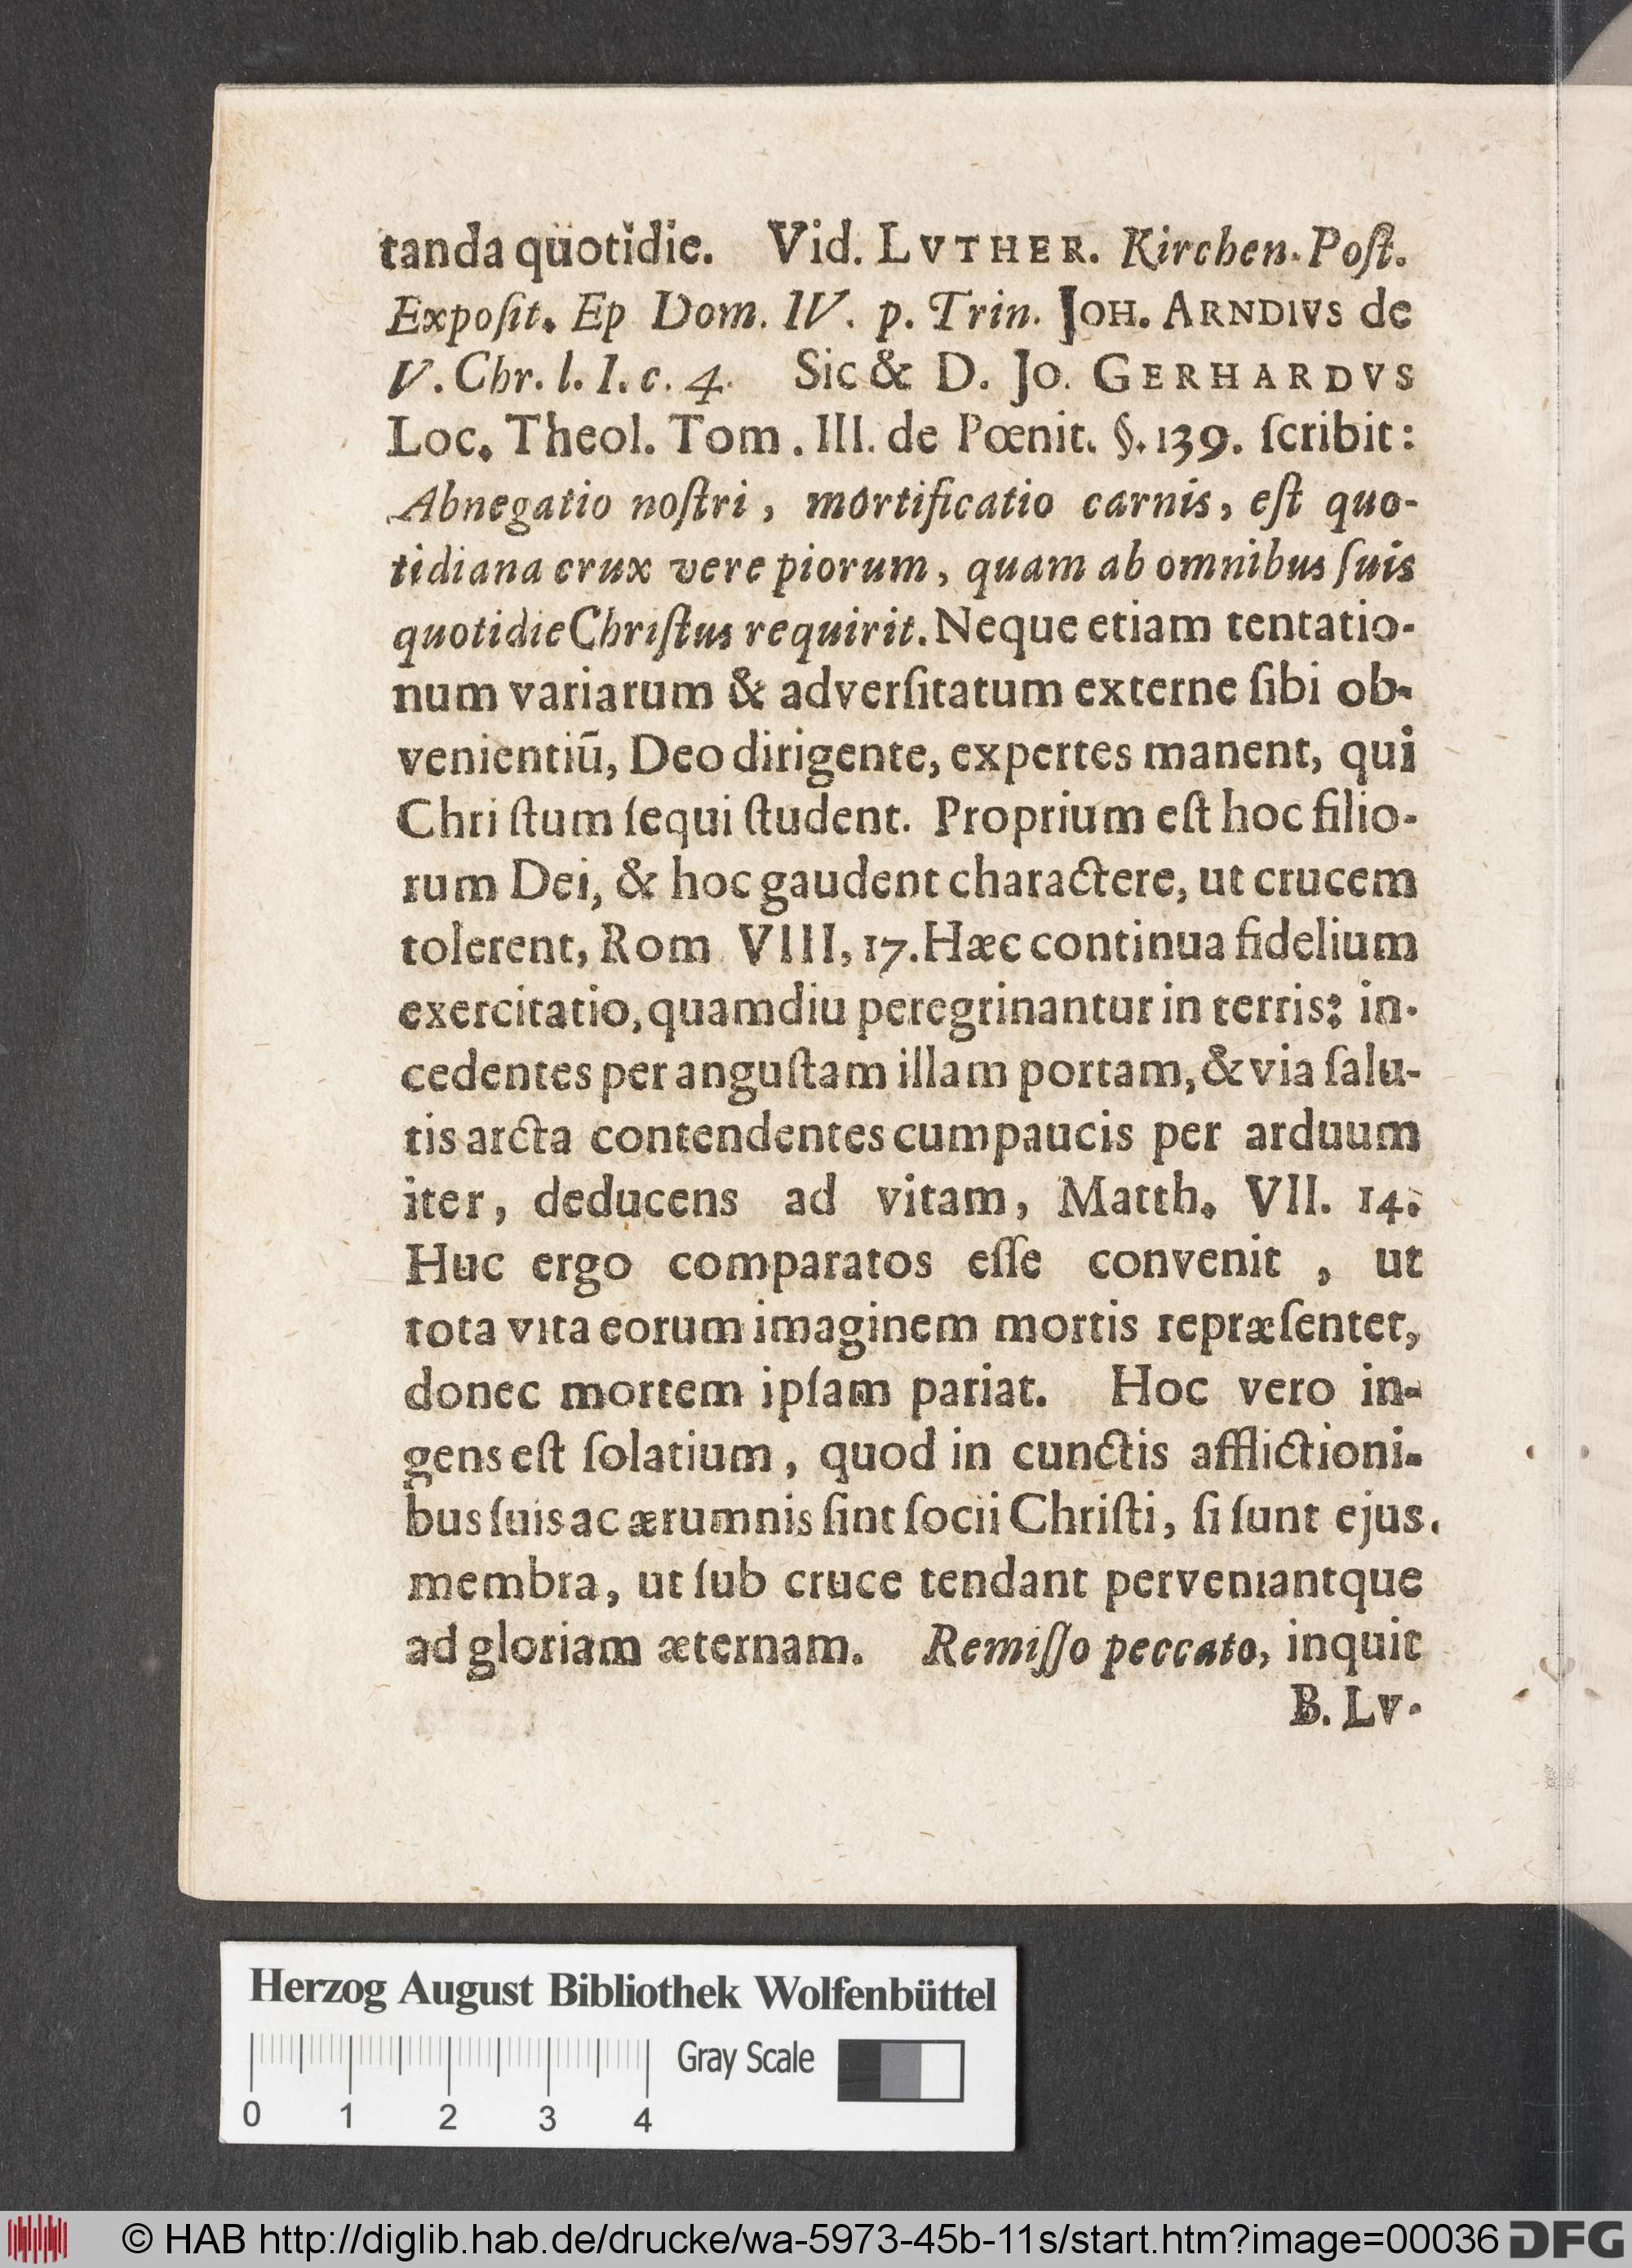 tanda quotidie. Vid. LVTHER. Kirchen-Poſt.
Expoſit. Ep Dom. IV. p. Trin. JOH. ARNDIVS de
V. Chr. l. I. c. 4. Sic & D. Jo. GERHARDVS
Loc. Theol. Tom. III. de Pœnit. §. 139. ſcribit:
Abnegatio noſtri, mortificatio carnis, eſt quo-
tidiana crux vere piorum, quam ab omnibus ſuis
quotidie Chriſtus requirit. Neque etiam tentatio-
num variarum & adverſitatum externe ſibi ob-
venientiū, Deo dirigente, expertes manent, qui
Chriſtum ſequi ſtudent. Proprium eſt hoc filio-
rum Dei, & hoc gaudent charactere, ut crucem
tolerent, Rom VIII, 17. Hæc continua fidelium
exercitatio, quamdiu peregrinantur in terris; in-
cedentes per anguſtam illam portam, & via ſalu-
tis arcta contendentes cum paucis per arduum
iter, deducens ad vitam, Matth. VII. 14.
Huc ergo comparatos eſſe convenit, ut
tota vita eorum imaginem mortis repræſentet,
donec mortem ipſam pariat. Hoc vero in-
gens eſt ſolatium, quod in cunctis afflictioni-
bus ſuis ac ærumnis ſint ſocii Chriſti, ſi ſunt ejus.
membra, ut ſub cruce tendant perveniantque
ad gloriam æternam. Remiſſo peccato, inquit
B. LV-
Herzog August Bibliothek Wolfenbüttel
Gray Scale
0 1 2 3 4
© HAB http://diglib.hab.de/drucke/wa-5973-45b-11s/start.htm?image=00036 DFG